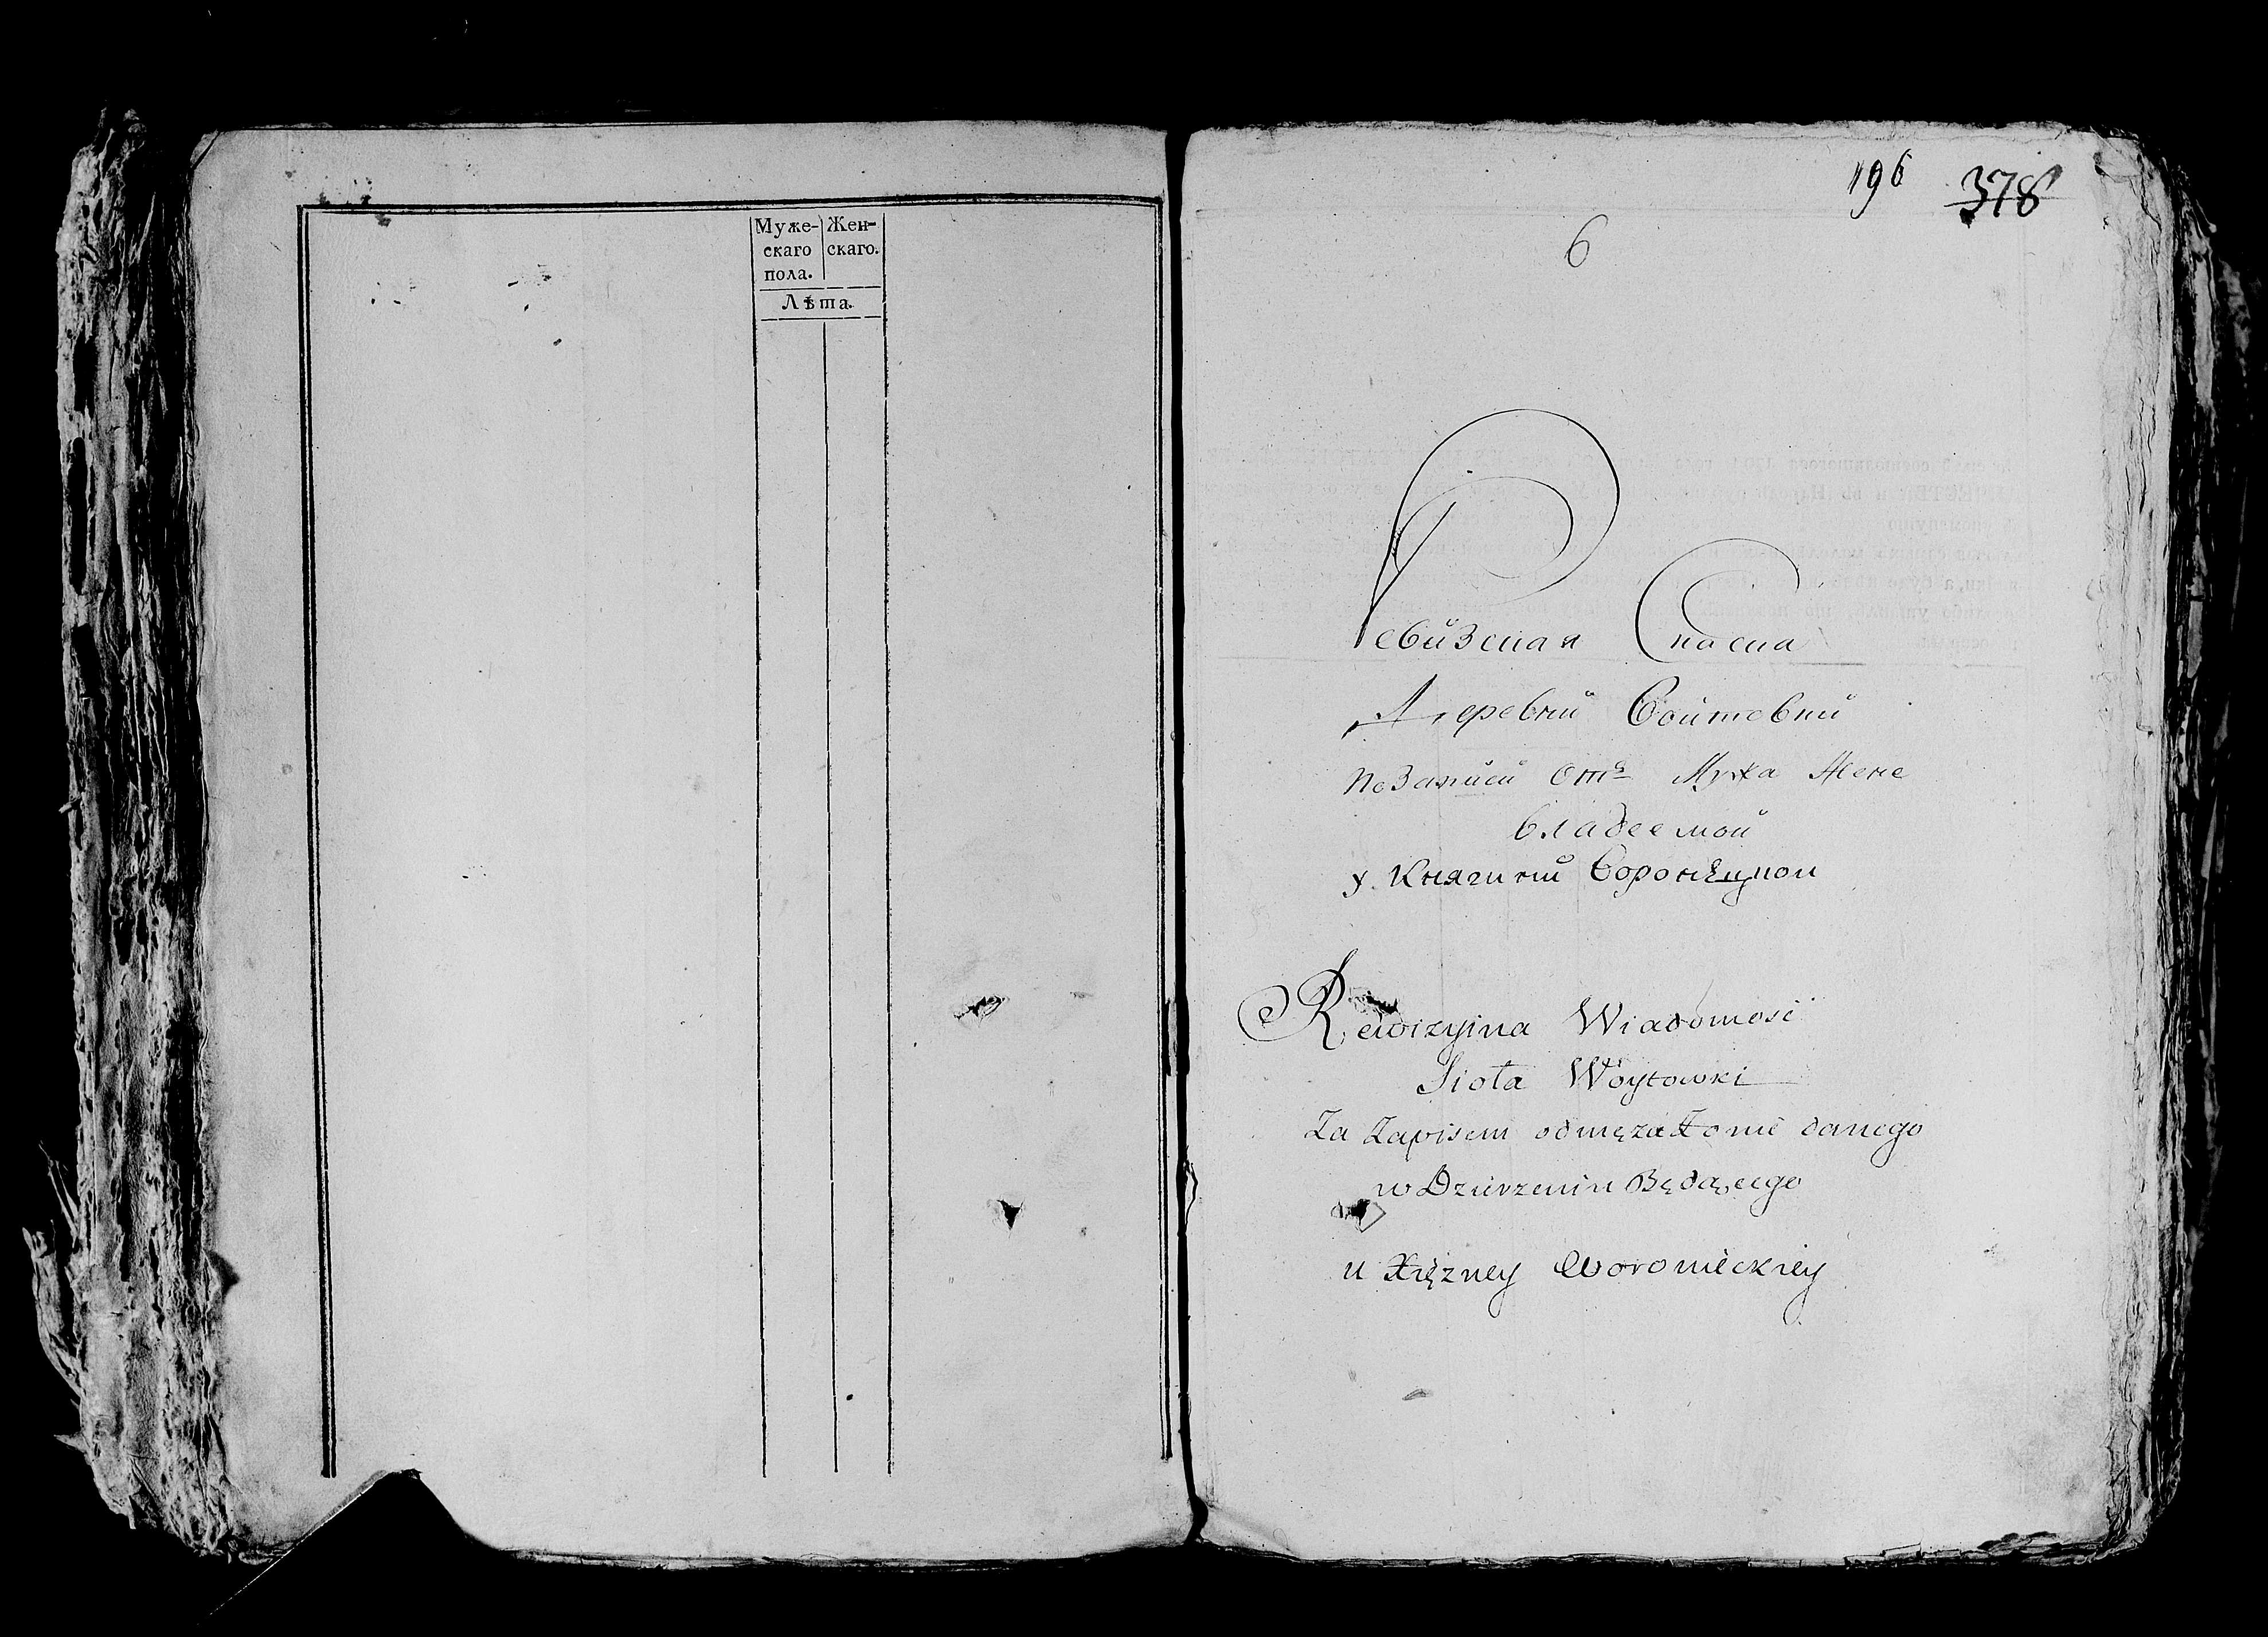 Муже-
скаго
пола.
Жен-
скаго.
Лѣта.
196 378
6
Ревизская Скаска
Деревни Войтовки
по Записи отъ Мужа Жене
владеемой
у Княгини Воронѣцкой
Rewizyina Wiadomosć
Sioła Woytowki
Za Zapisem od męza Żonie danego
w Dzierzeniu Będącego
u Xięzney Woronieckiey